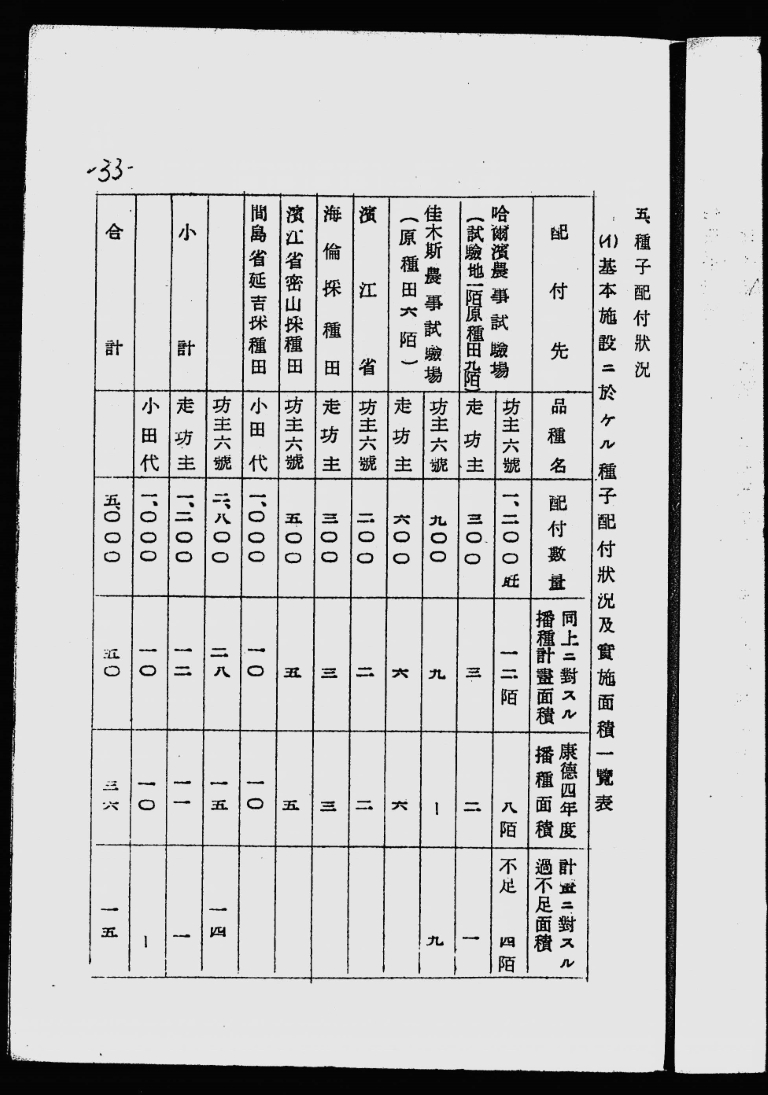 五、種子配付狀況
(イ)基本施設ニ於ケル種子配付狀況及實施面積一覽表
配付先 品種名 配付數量 同上ニ對スル播種計畫面積 康德四年度播種面積 計畫ニ對スル過不足面積
哈爾濱農事試驗場 坊主六號 一、二〇〇瓩 一二陌 八陌 不足 四陌
(試驗地一陌原種田九陌) 走坊主 三〇〇 三 二 一
佳木斯農事試驗場 坊主六號 九〇〇 九 ー 九
(原種田六陌) 走坊主 六〇〇 六 六
濱江省 坊主六號 二〇〇 二 二
海倫採種田 走坊主 三〇〇 三 三
濱江省密山採種田 坊主六號 五〇〇 五 五
間島省延吉採種田 小田代 一、〇〇〇 一〇 一〇
坊主六號 二、八〇〇 二八 一五 一四
小計 走坊主 一、二〇〇 一二 一一 一
小田代 一、〇〇〇 一〇 一〇 ー
合計 五、〇〇〇 五〇 三六 一五
-33-